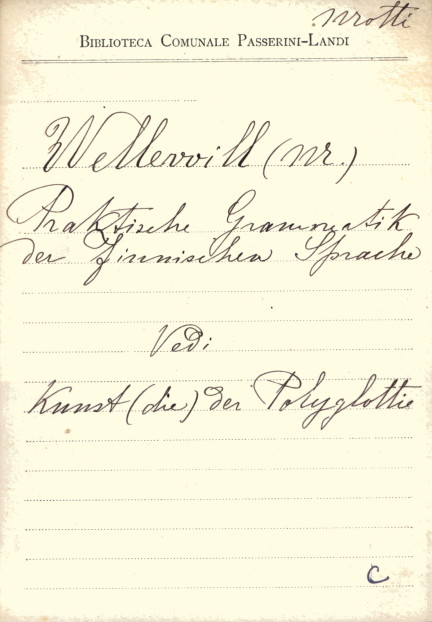 Mrotti
BIBLIOTECA COMUNALE PASSERINI-LANDI
Wellewill (M.)
Praktische Grammatik
der Finnischen Sprache
Vedi
Kunst (die) der Polyglottie
C